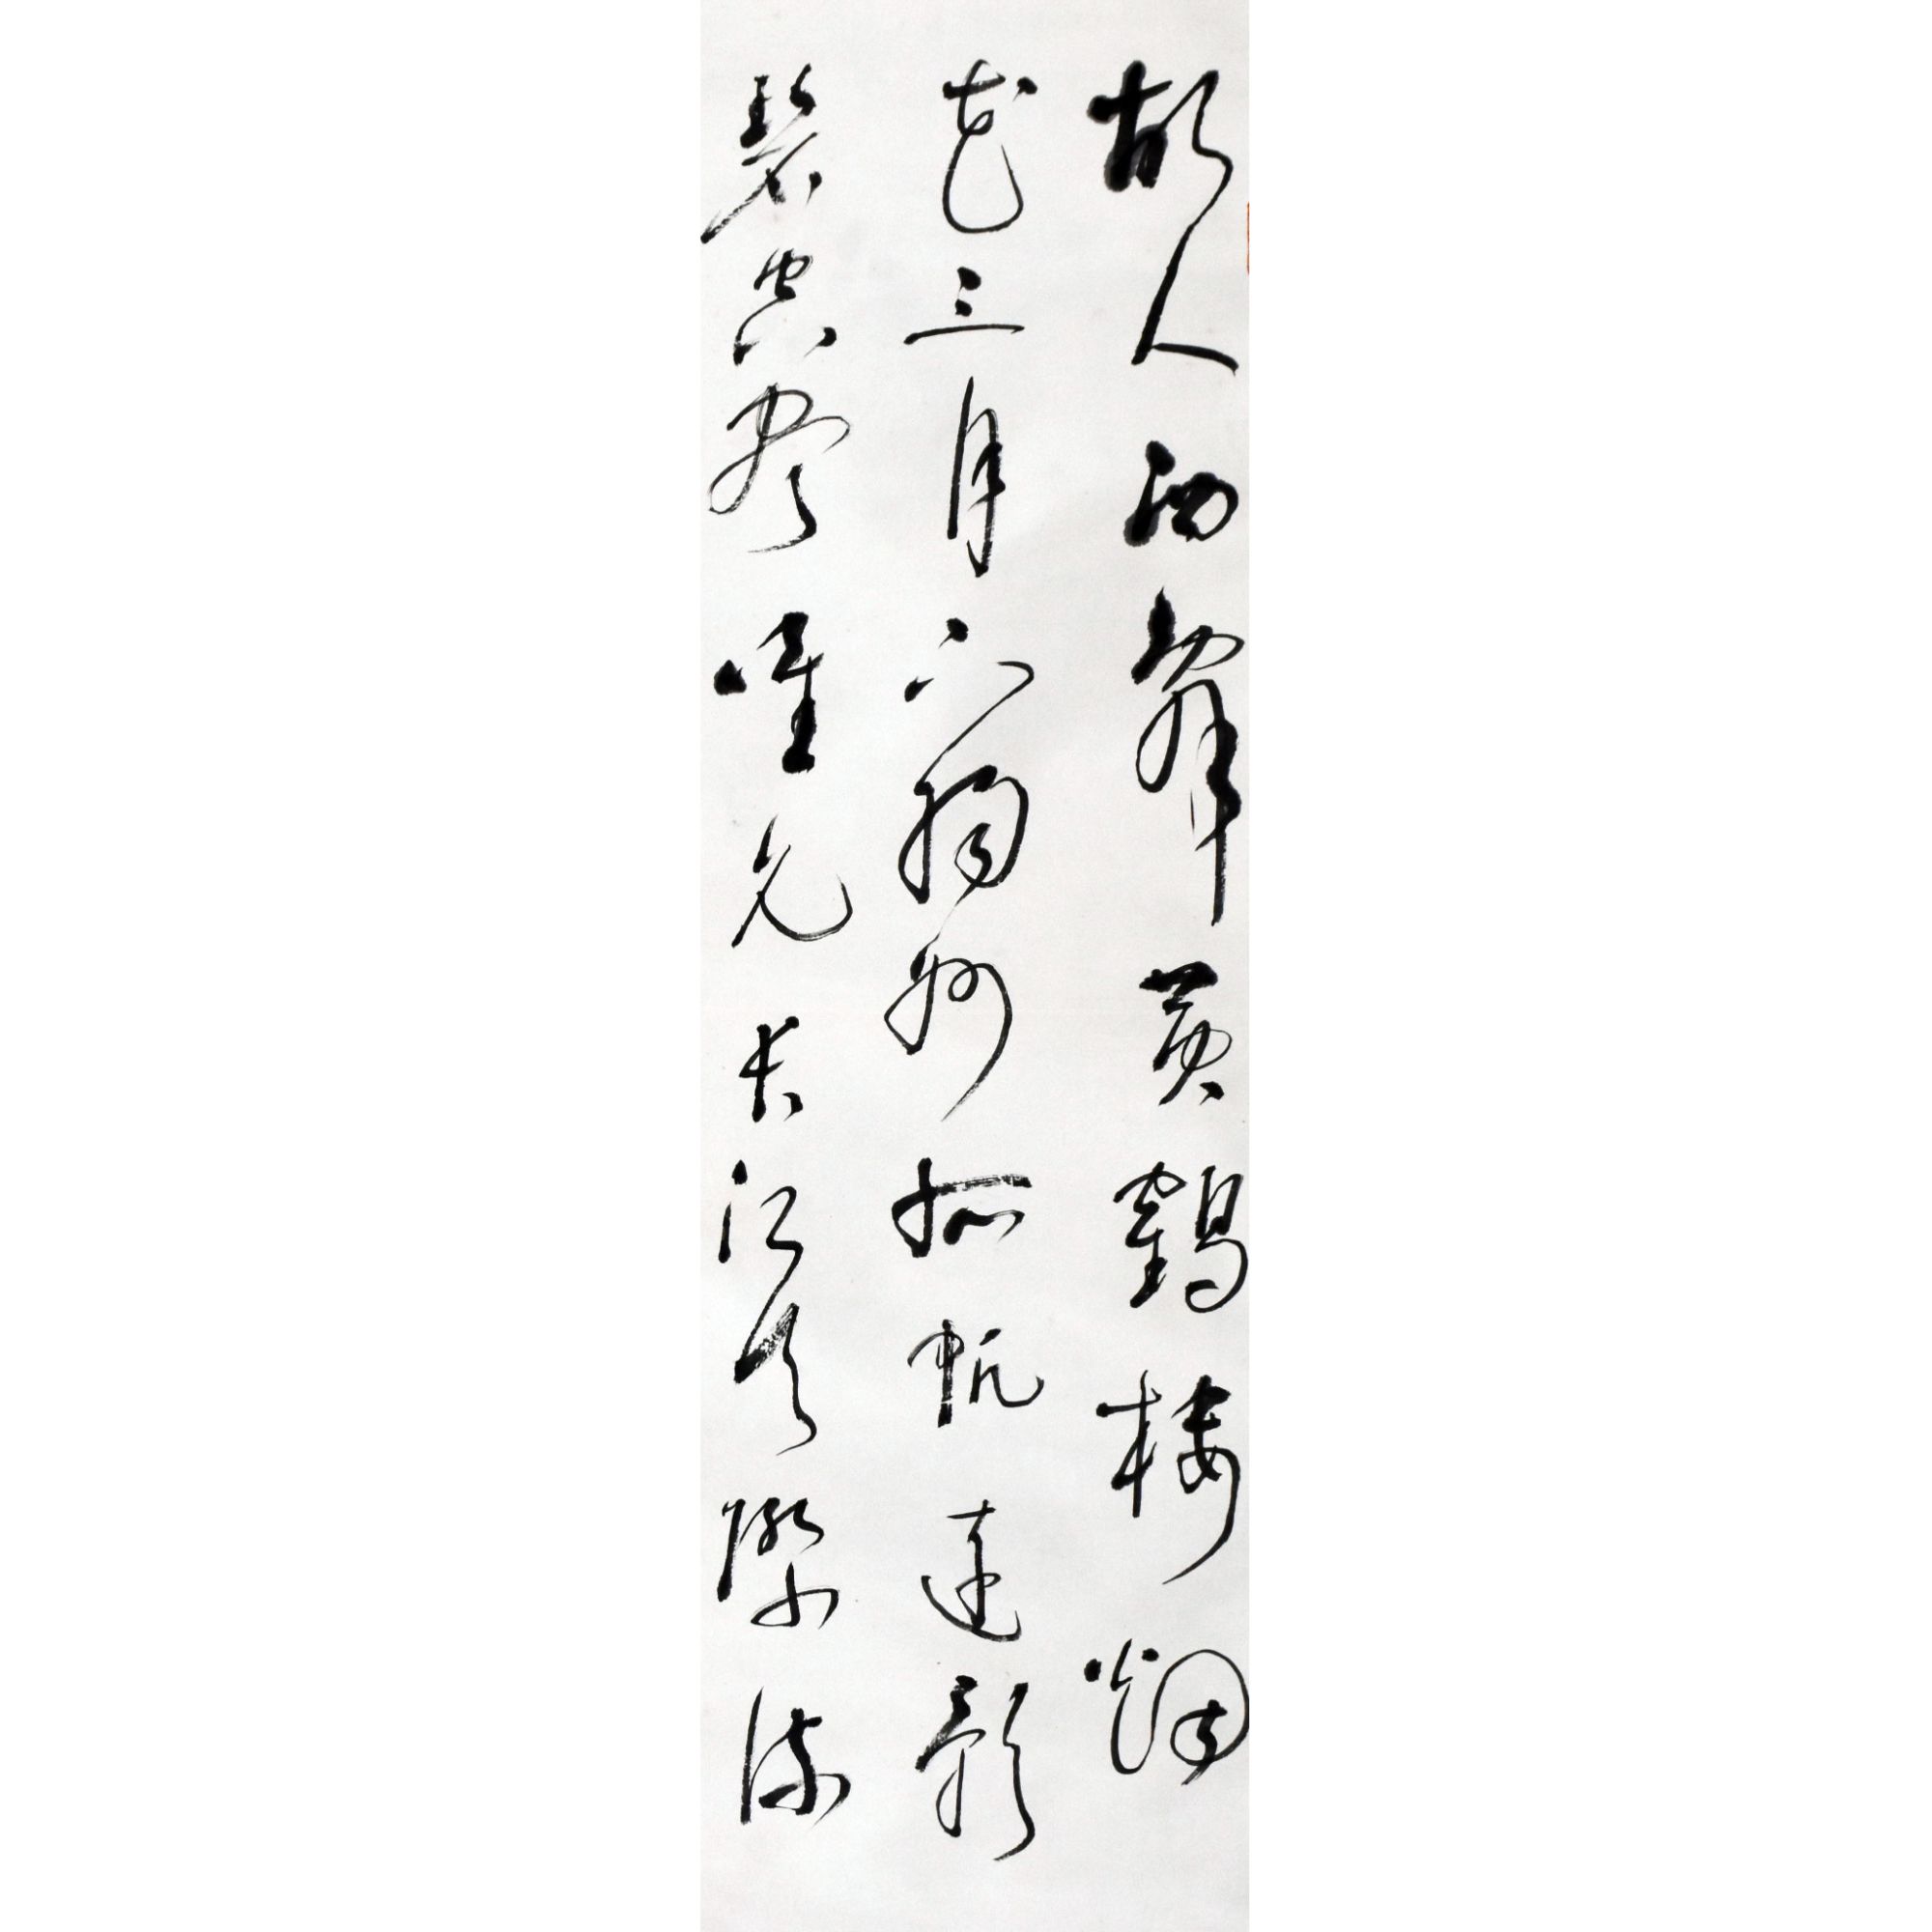 故人西辭黃鶴樓烟
花三月下揚州孤帆遠影
碧空盡唯見長江天際流